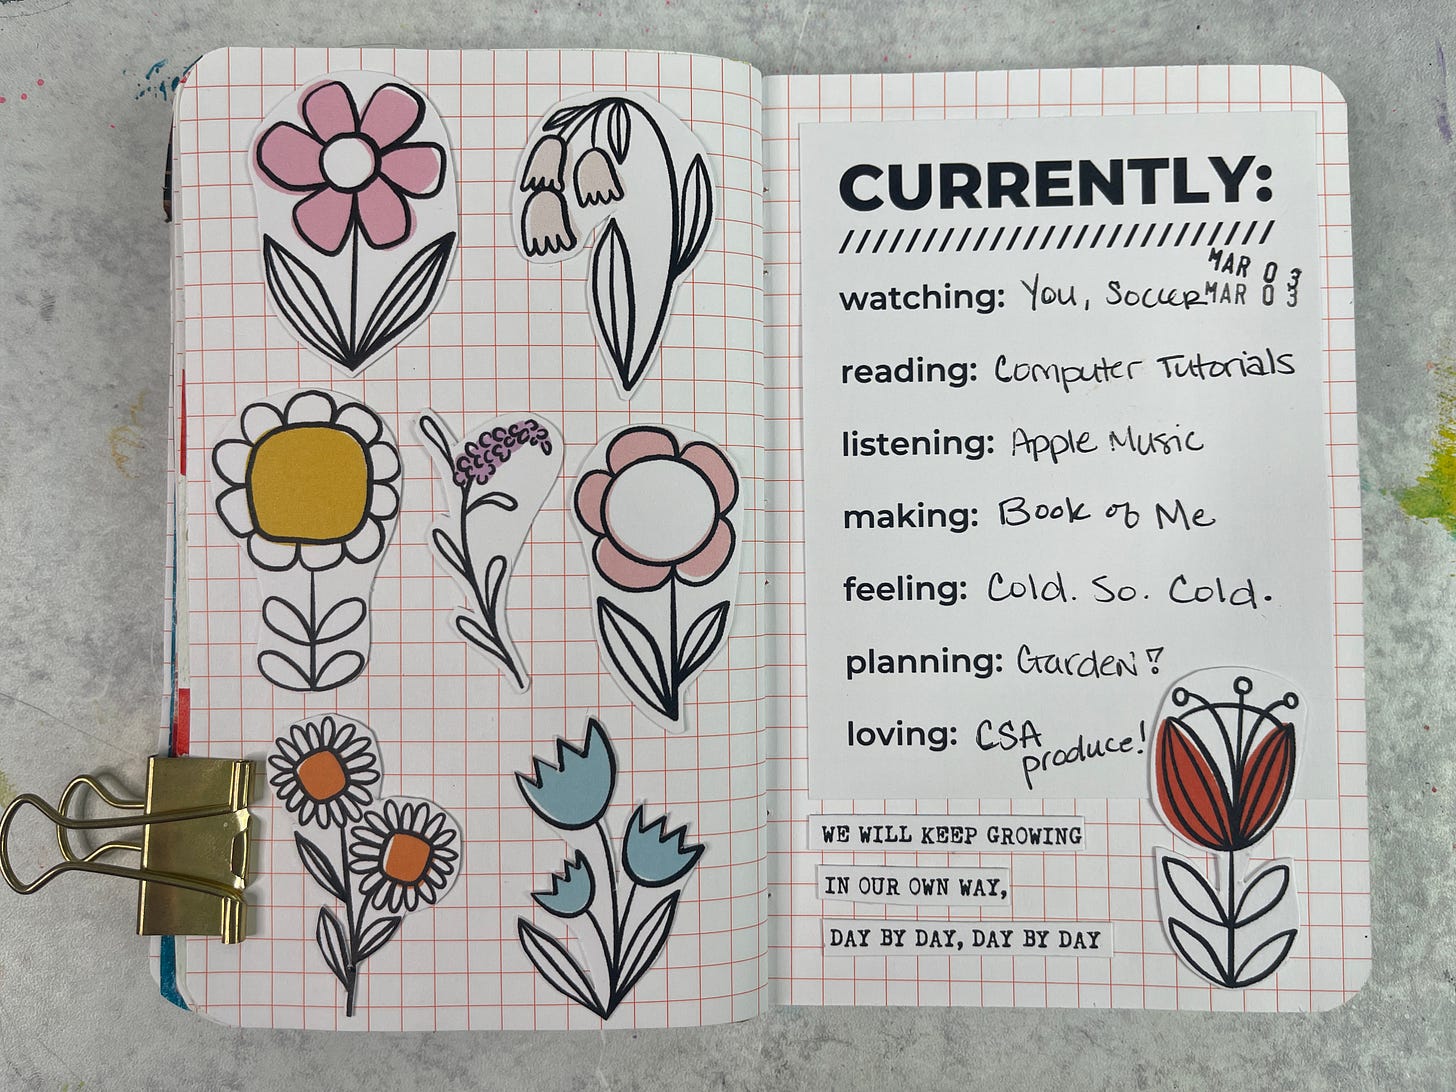 CURRENTLY:
MAR 03
watching: You, Soccer MAR 03
reading: Computer Tutorials
listening: Apple Music
making: Book of Me
feeling: Cold. So. Cold.
planning: Garden?
loving: CSA
produce!
WE WILL KEEP GROWING
IN OUR OWN WAY,
DAY BY DAY, DAY BY DAY